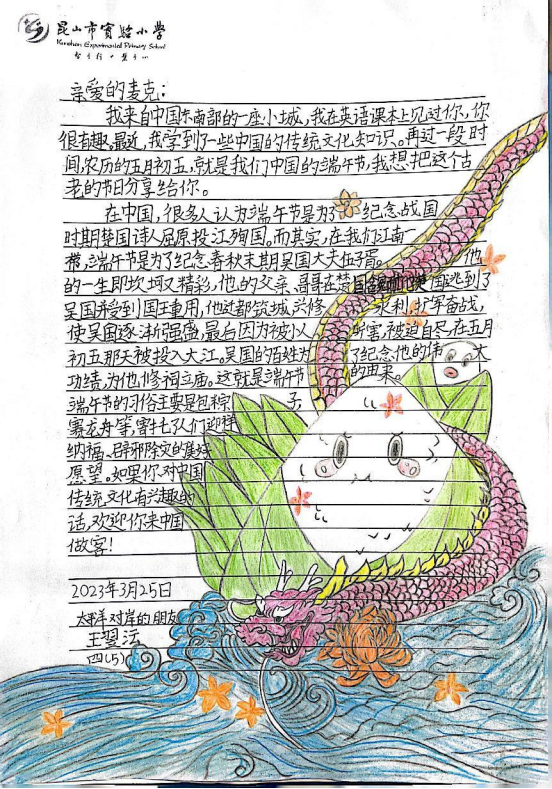 昆山市實驗小學
Kunshan Experimental Primary School
亲爱的麦克：
我来自中国东南部的一座小城，我在英语课本上见过你，你
很有趣。最近，我学到了一些中国的传统文化知识。再过一段时
间，农历的五月初五，就是我们中国的端午节，我想把这个古
老的节日分享给你。
在中国，很多人认为端午节是为了纪念战国
时期楚国诗人屈原投江殉国。而其实，在我们江南一
带，端午节是为了纪念春秋末期吴国大夫伍子胥。他
的一生即坎坷又精彩，他的父亲、哥哥在楚国逃到了
吴国并受到国王重用，他述都筑城，兴修水利，扩军奋战，
使吴国逐渐强盛，最后因为被小人所害，被迫自尽，在五月
初五那天被投入大江。吴国的百姓为了纪念他的伟大
功绩，为他修祠立庙。这就是端午节的由来。
端午节的习俗主要是包粽子，
赛龙舟等，寄托了人们迎祥
纳福、辟邪除灾的美好
愿望。如果你对中国
传统文化有兴趣的
话，欢迎你来中国
做客！
2023年3月25日
太平洋对岸的朋友
王翌
四(5)